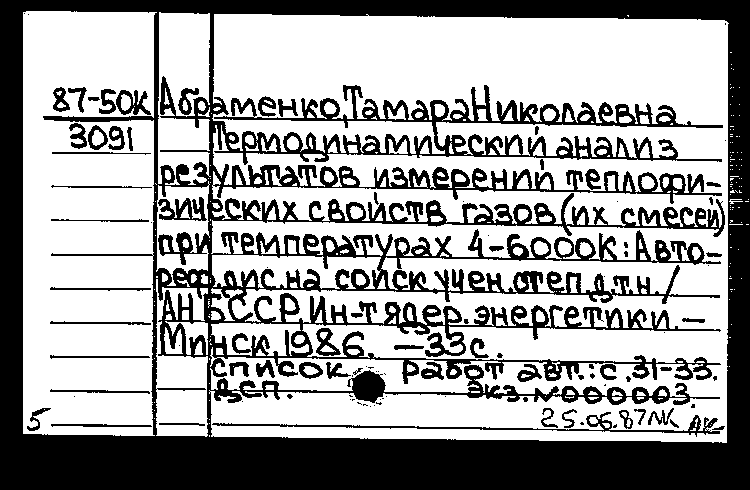 87-50К Абраменко, Тамара Николаевна.
3091 Термодинамический анализ
результатов измерений теплофи-
зических свойств газов (их смесей)
при температурах 4-6000К: Авто-
реф. дис. на соиск. учен. степ. д.т.н. /
АН БССР, Ин-т ядер. энергетики. —
Минск, 1986. — 33 с.
Список работ авт.: с. 31-33.
ДСП. Экз. №000003.
5 25.06.87 АК